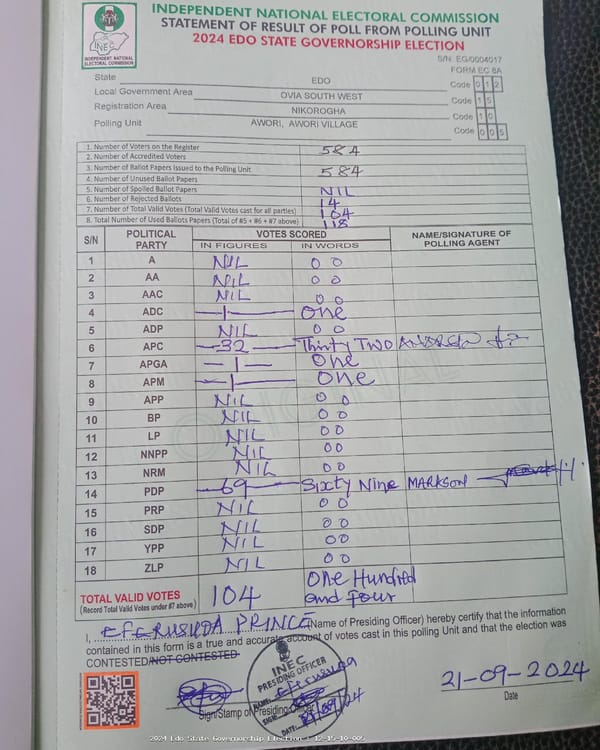 INDEPENDENT NATIONAL ELECTORAL COMMISSION
STATEMENT OF RESULT OF POLL FROM POLLING UNIT
2024 EDO STATE GOVERNORSHIP ELECTION
INEC
INDEPENDENT NATIONAL ELECTORAL COMMISSION
S/N: EG/0004017
FORM EC 8A
State EDO Code 012
Local Government Area OVIA SOUTH WEST Code 15
Registration Area NIKOROGHA Code 10
Polling Unit AWORI, AWORI VILLAGE Code 005
1. Number of Voters on the Register 584
2. Number of Accredited Voters
3. Number of Ballot Papers Issued to the Polling Unit 584
4. Number of Unused Ballot Papers
5. Number of Spoiled Ballot Papers NIL
6. Number of Rejected Ballots 14
7. Number of Total Valid Votes (Total Valid Votes cast for all parties) 104
8. Total Number of Used Ballots Papers (Total of #5 + #6 + #7 above) 118
S/N POLITICAL PARTY VOTES SCORED NAME/SIGNATURE OF POLLING AGENT
IN FIGURES IN WORDS
1 A NIL 00
2 AA NIL 00
3 AAC NIL 00
4 ADC —1— One
5 ADP NIL 00
6 APC —32— Thirty TWO ANDREW
7 APGA —1— One
8 APM —1— One
9 APP NIL 00
10 BP NIL 00
11 LP NIL 00
12 NNPP NIL 00
13 NRM NIL 00
14 PDP —69— Sixty Nine MARKSON
15 PRP NIL 00
16 SDP NIL 00
17 YPP NIL 00
18 ZLP NIL 00
TOTAL VALID VOTES 104 One Hundred and four
(Record Total Valid Votes under #7 above)
I, EFERUSUOA PRINCE (Name of Presiding Officer) hereby certify that the information
contained in this form is a true and accurate account of votes cast in this polling Unit and that the election was
CONTESTED/NOT CONTESTED.
INEC
PRESIDING OFFICER
NAME:
SIGN:
DATE: 21/09/24
Sign/Stamp of Presiding Officer
21-09-2024
Date
2024 Edo State Governorship Election - 12-15-10-005